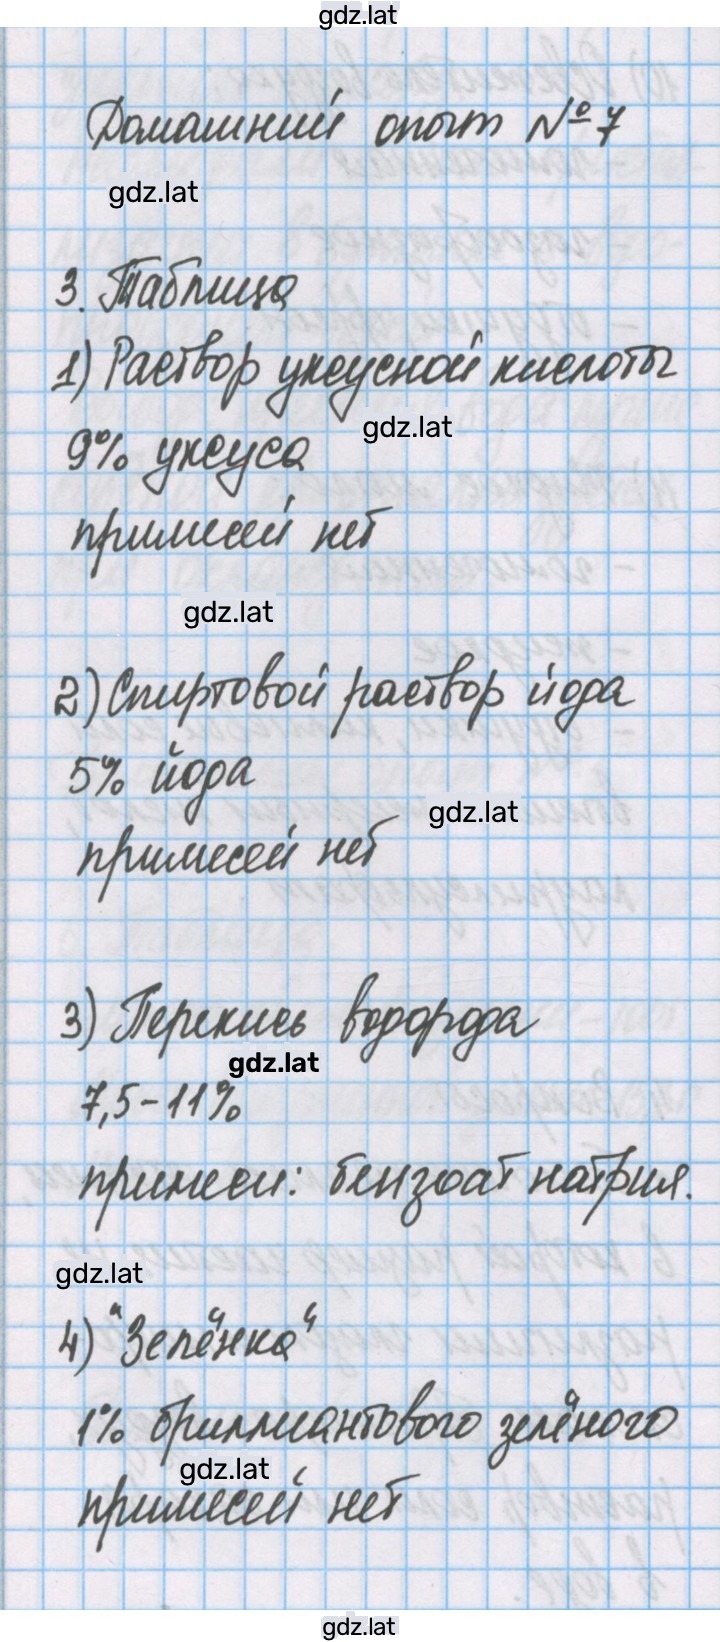 gdz.lat
Домашний опыт №7
gdz.lat
3. Таблица
1) Раствор уксусной кислоты
gdz.lat
9% уксуса
примесей нет
gdz.lat
2) Спиртовой раствор йода
5% йода
gdz.lat
примесей нет
3) Перекись водорода
gdz.lat
7,5-11%
примеси: бензоат натрия.
gdz.lat
4) "Зелёнка"
1% бриллиантового зелёного
gdz.lat
примесей нет
gdz.lat